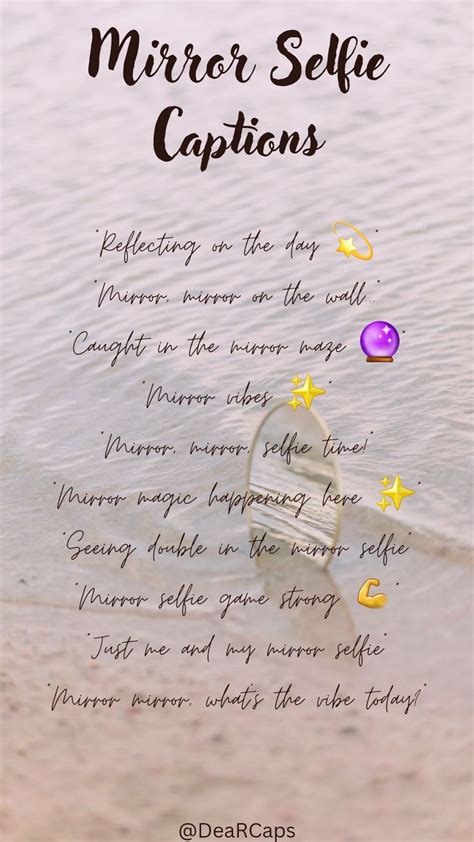 Mirror Selfie
Captions
"Reflecting on the day 💫"
"Mirror, mirror on the wall..."
"Caught in the mirror maze 🔮"
"Mirror vibes ✨"
"Mirror, mirror, selfie time!"
"Mirror magic happening here ✨"
"Seeing double in the mirror selfie"
"Mirror selfie game strong 💪"
"Just me and my mirror selfie"
"Mirror mirror, what's the vibe today?"
@DeaRCaps